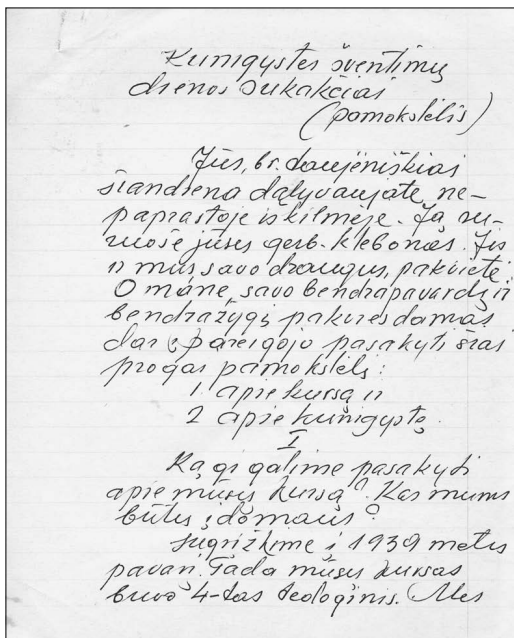 Kunigystės šventimų
dienos sukakčiai
(pamokslėlis)
Jūs, br. daujėniškiai
šiandieną dalyvaujate ne-
paprastoje iškilmėje. Ją su-
ruošė jūsų gerb. klebonas. Jis
ir mus, savo draugus, pakvietė.
O mane, savo bendrapavardį ir
bendražygį pakviesdamas
dar įpareigojo pasakyti šias
progas pamokslėlį:
1. apie kursą ir
2 apie kunigystę.
I
Ką gi galime pasakyti
apie mūsų kursą? Kas mums
būtų įdomaus?
Sugrįžkime į 1939 metų
pavarį. Tada mūsų kursas
buvo 4-tas teologinis. Mes